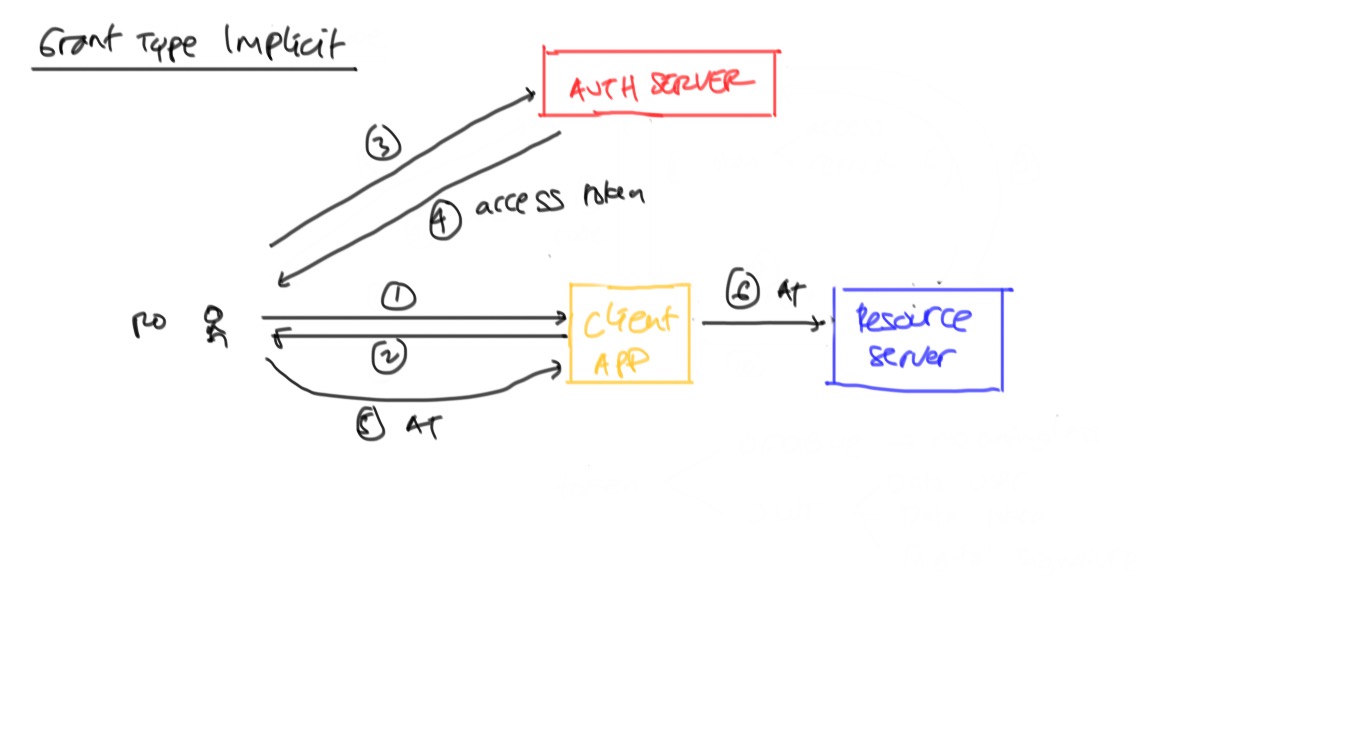 Grant Type Implicit
AUTH SERVER
3
4 access token
1
6 AT
RO
Client
APP
Resource
server
2
5 AT